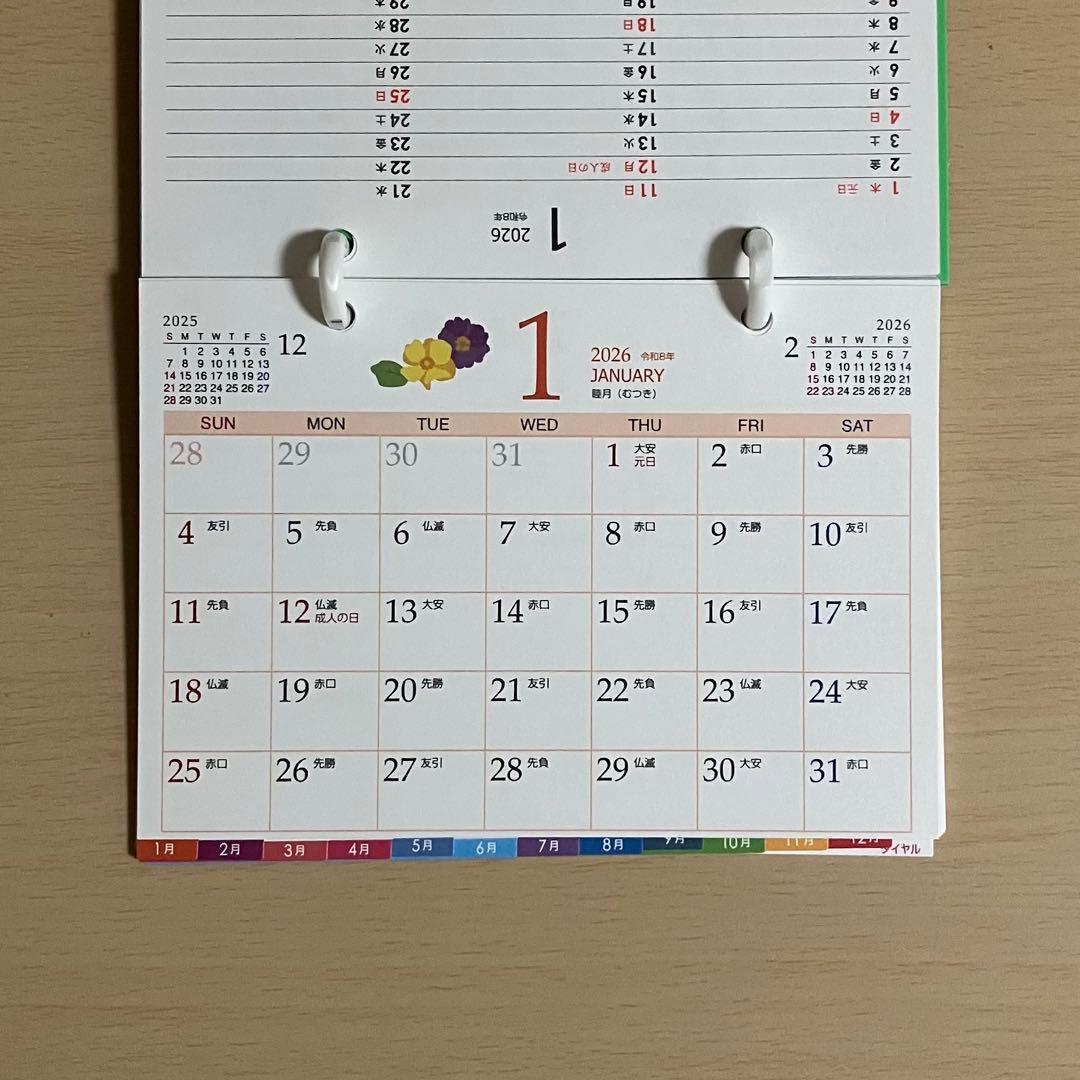 29 木
19
9 金
28 水
18 日
8 木
27 火
17 土
7 水
26 月
16 金
6 火
25 日
15 木
5 月
24 土
14 水
4 日
23 金
13 火
3 土
22 木
12 月 成人の日
2 金
21 水
11 日
1 木 元日
2026
令和8年
1
2025
S M T W T F S
1 2 3 4 5 6
7 8 9 10 11 12 13
14 15 16 17 18 19 20
21 22 23 24 25 26 27
28 29 30 31
12
1
2026 令和8年
JANUARY
睦月（むつき）
2
2026
S M T W T F S
1 2 3 4 5 6 7
8 9 10 11 12 13 14
15 16 17 18 19 20 21
22 23 24 25 26 27 28
SUN MON TUE WED THU FRI SAT
28 29 30 31 1 大安 元日 2 赤口 3 先勝
4 友引 5 先負 6 仏滅 7 大安 8 赤口 9 先勝 10 友引
11 先負 12 仏滅 成人の日 13 大安 14 赤口 15 先勝 16 友引 17 先負
18 仏滅 19 赤口 20 先勝 21 友引 22 先負 23 仏滅 24 大安
25 赤口 26 先勝 27 友引 28 先負 29 仏滅 30 大安 31 赤口
1月 2月 3月 4月 5月 6月 7月 8月 9月 10月 11月 12月
ダイヤル